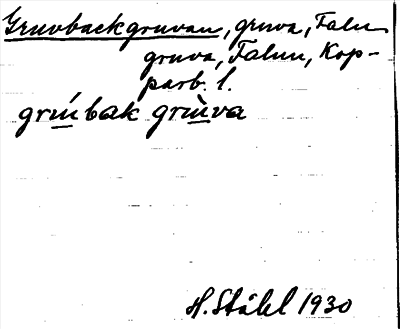 Gruvbackgruvan, gruva, Falu
gruva, Falun, Kop-
parb. l.
grúbak grùva
H. Ståhl 1930